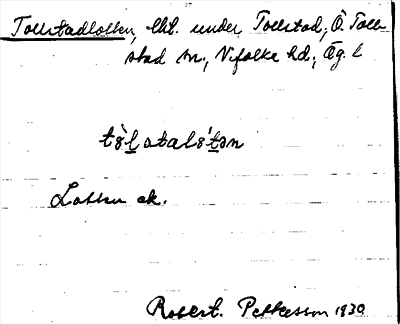 Tollstadlotten, lht. under Tollstad, Ö. Toll-
stad sn., Vifolka hd., Ög. l
Lotten ek.
Robert Pettersson 1930